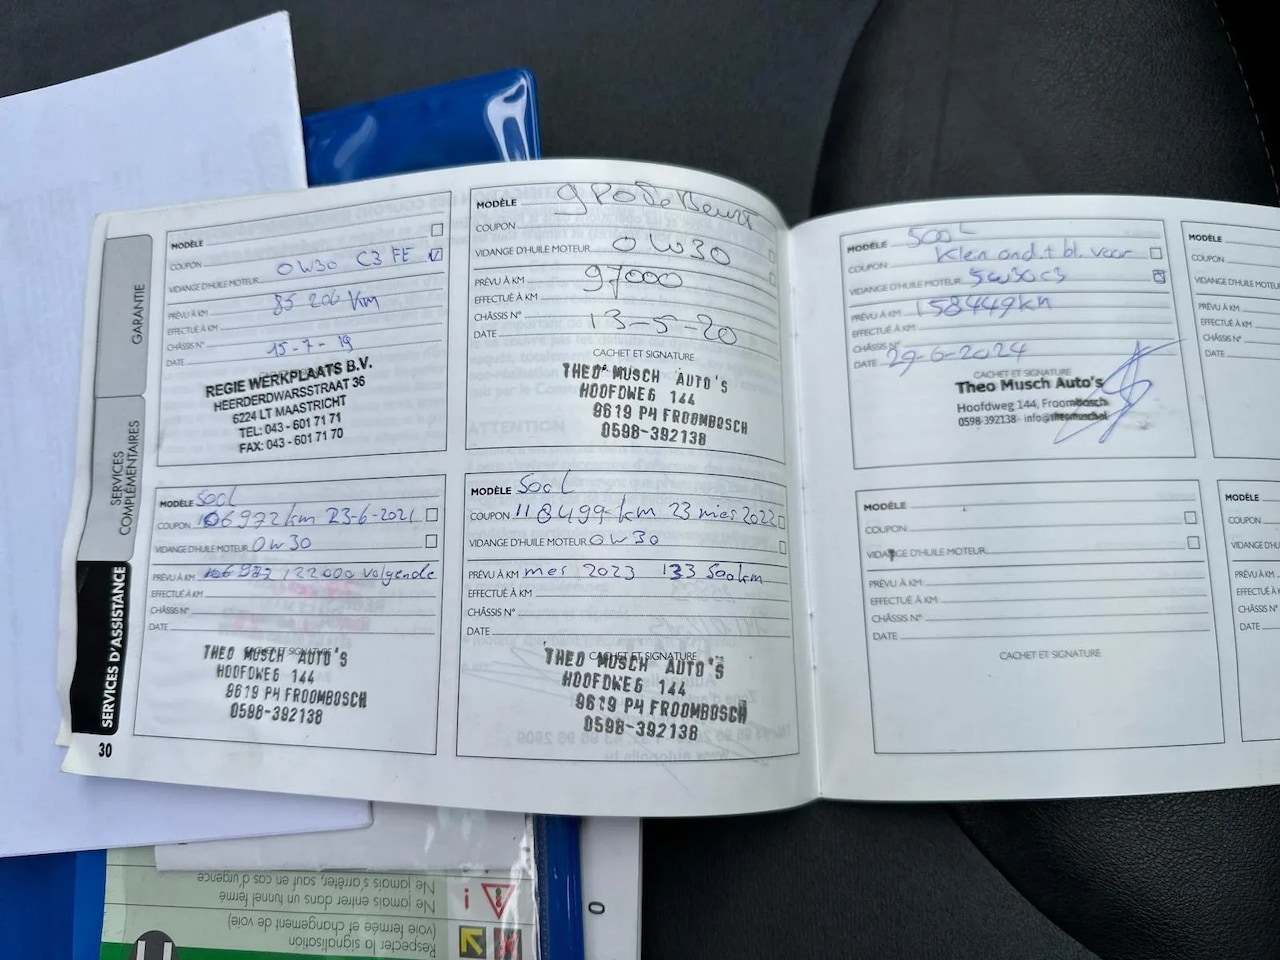 GARANTIE
SERVICES
COMPLÉMENTAIRES
SERVICES D'ASSISTANCE
30
MODÈLE
COUPON
VIDANGE D'HUILE MOTEUR 0W30 C3 FE
PRÉVU À KM 85 206 Km
EFFECTUÉ À KM
CHÂSSIS N°
DATE 15-7-19
REGIE WERKPLAATS B.V.
HEERDERDWARSSTRAAT 36
6224 LT MAASTRICHT
TEL: 043 - 601 71 71
FAX: 043 - 601 71 70
MODÈLE grote Beurt
COUPON
VIDANGE D'HUILE MOTEUR 0W30
PRÉVU À KM 97000
EFFECTUÉ À KM
CHÂSSIS N°
DATE 13-5-20
CACHET ET SIGNATURE
THEO MUSCH AUTO'S
HOOFDWEG 144
9619 PH FROOMBOSCH
0598-392138
MODÈLE 500L
COUPON 106972 km 23-6-2021
VIDANGE D'HUILE MOTEUR 0W30
PRÉVU À KM 122000 volgende
EFFECTUÉ À KM
CHÂSSIS N°
DATE
CACHET ET SIGNATURE
THEO MUSCH AUTO'S
HOOFDWEG 144
9619 PH FROOMBOSCH
0598-392138
MODÈLE 500L
COUPON 118499 km 23 mei 2022
VIDANGE D'HUILE MOTEUR 0W30
PRÉVU À KM mei 2023 133 500km
EFFECTUÉ À KM
CHÂSSIS N°
DATE
CACHET ET SIGNATURE
THEO MUSCH AUTO'S
HOOFDWEG 144
9619 PH FROOMBOSCH
0598-392138
MODÈLE 500L
COUPON Klein ond. + bl. voor
VIDANGE D'HUILE MOTEUR 5W30 C3
PRÉVU À KM 158449km
EFFECTUÉ À KM
CHÂSSIS N°
DATE 29-6-2024
CACHET ET SIGNATURE
Theo Musch Auto's
Hoofdweg 144, Froombosch
0598-392138 - info@theomusch.nl
MODÈLE
COUPON
VIDANGE D'HUILE MOTEUR
PRÉVU À KM
EFFECTUÉ À KM
CHÂSSIS N°
DATE
CACHET ET SIGNATURE
MODÈLE
COUPON
VIDANGE D'HUILE
PRÉVU À KM
EFFECTUÉ À K
CHÂSSIS N°
DATE
MODÈLE
COUPON
VIDANGE D'HU
PRÉVU À KM
EFFECTUÉ À
CHÂSSIS N°
DATE
Respecter la signalisation
(voie fermée et changement
de voie)
Ne jamais entrer dans un tunnel fermé
Ne jamais s'arrêter, sauf en cas d'urgence